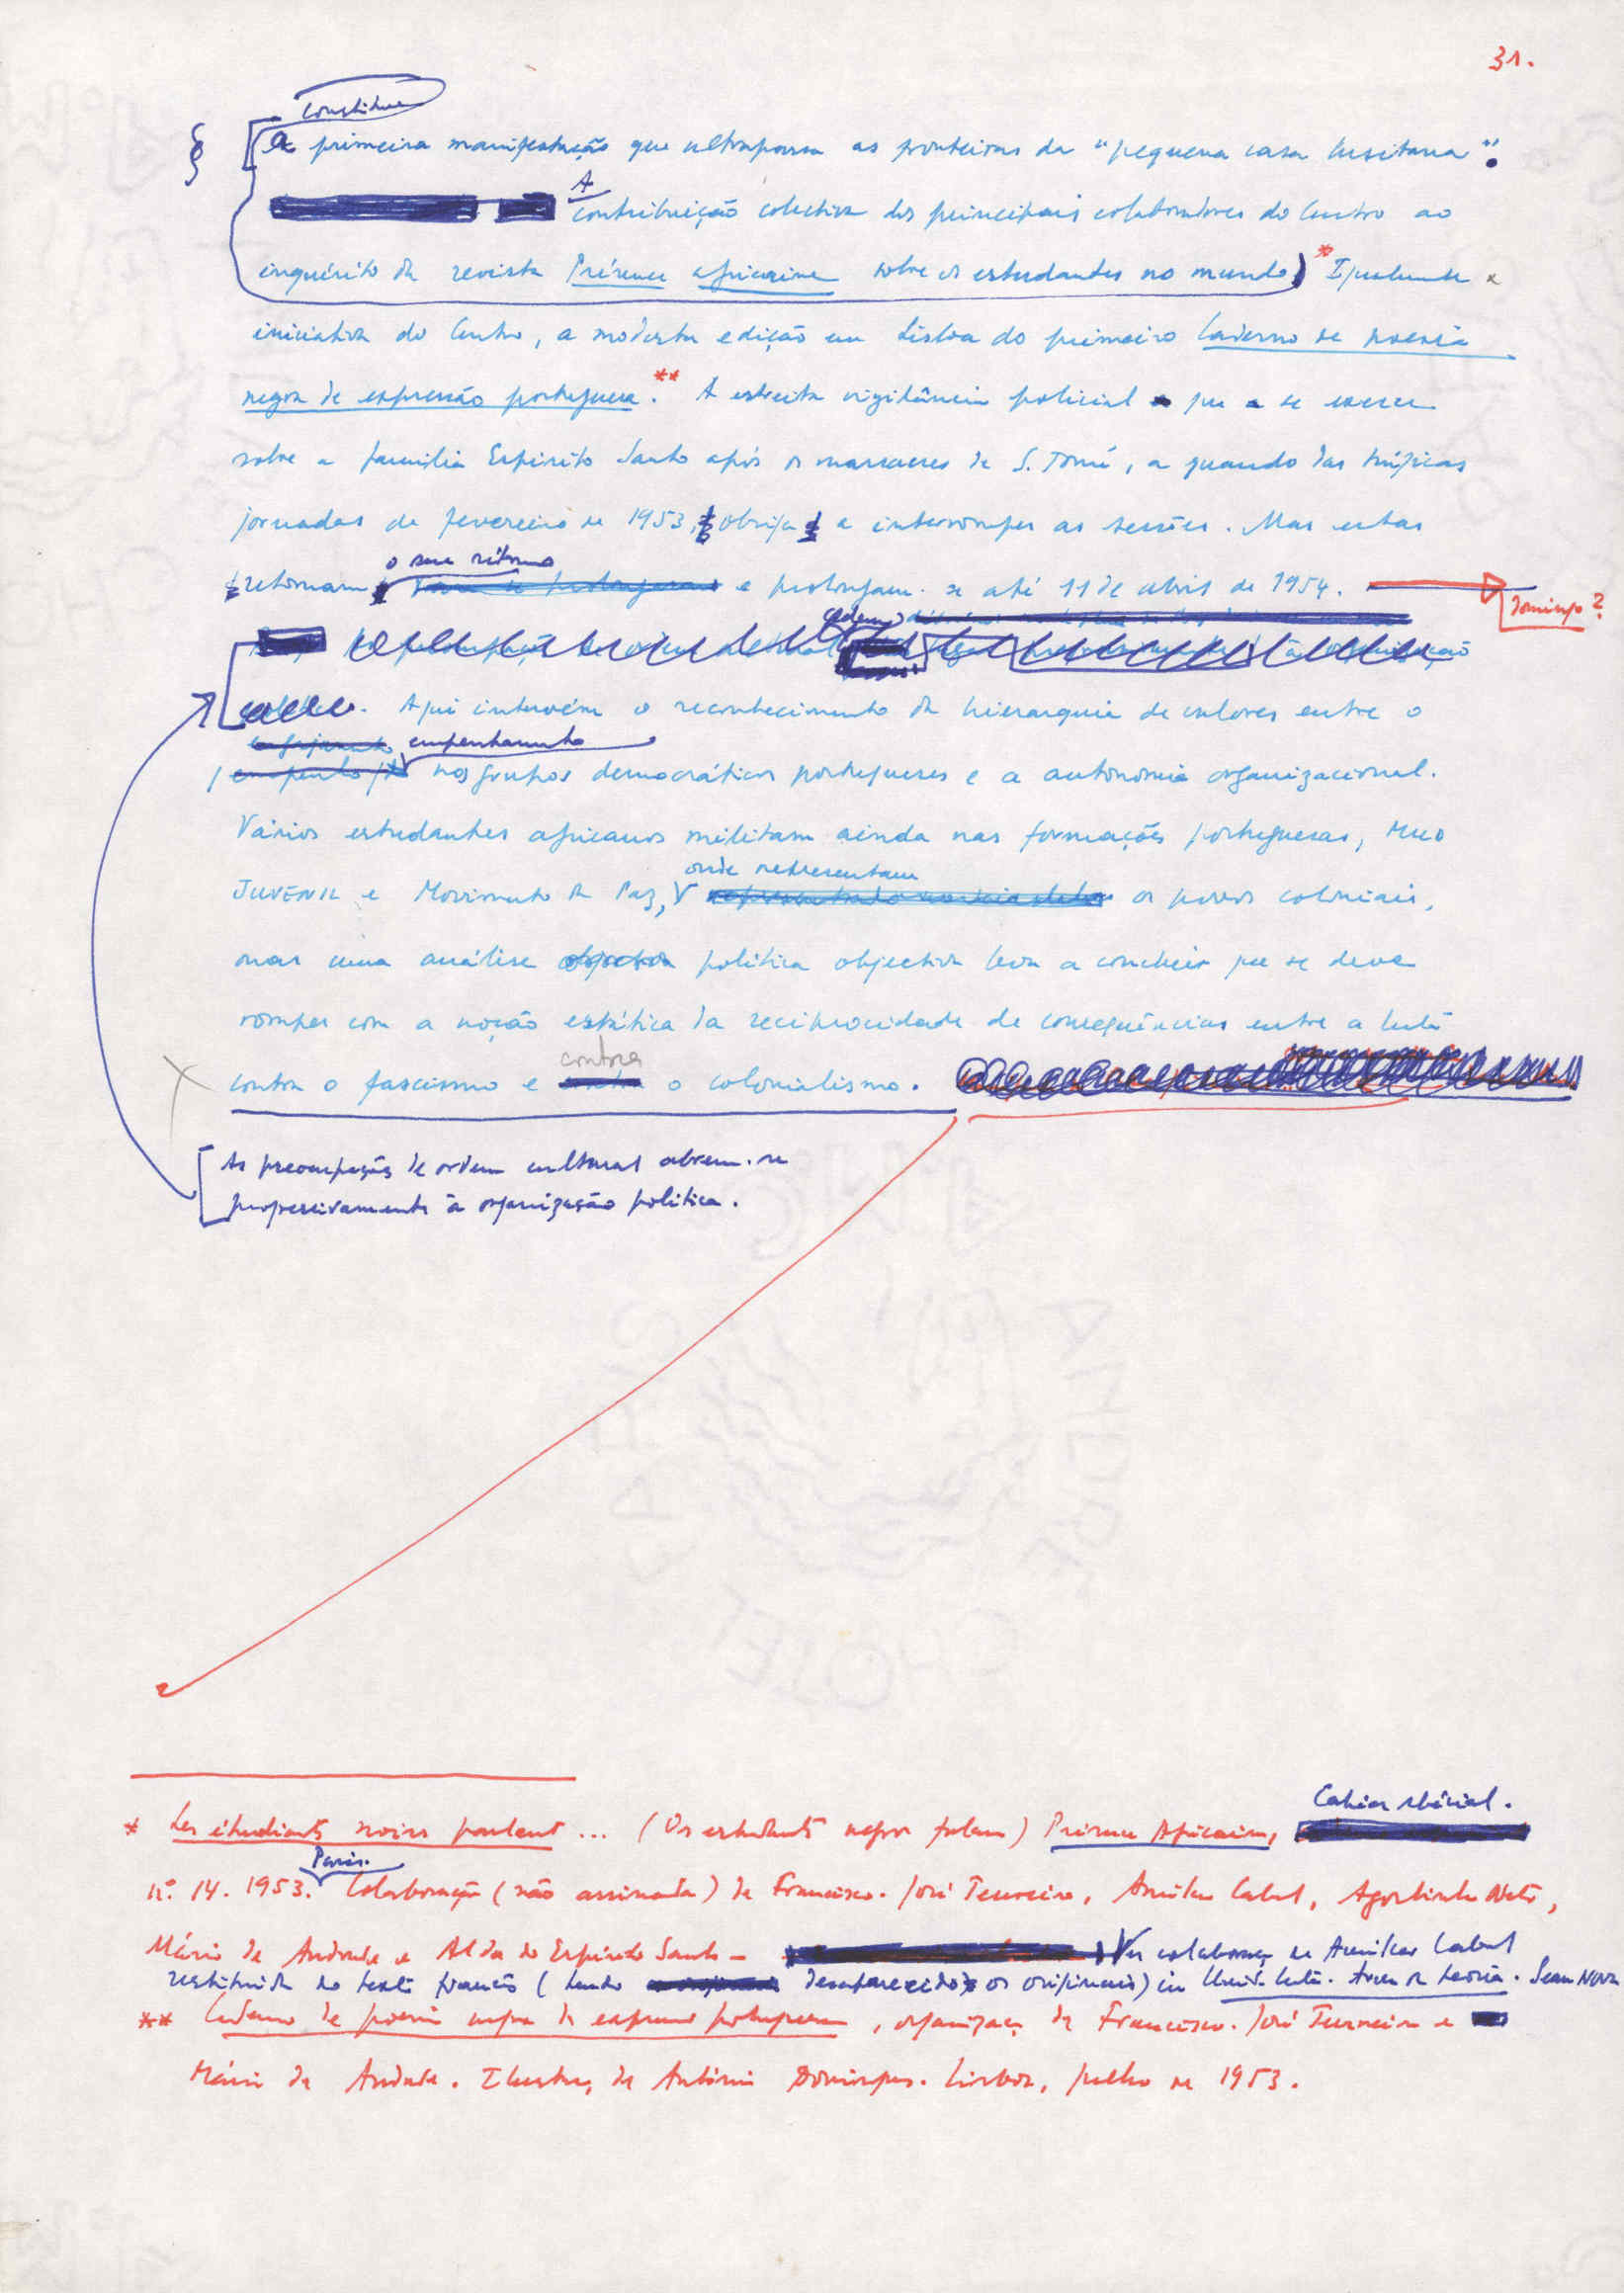 31.
constitue
§ A primeira manifestação que ultrapassa as fronteiras da "pequena casa lusitana".
A contribuição colectiva dos principais colaboradores do Centro ao
inquérito da revista Présence africaine sobre os estudantes no mundo) * Igualmente
iniciativa do Centro, a modesta edição em Lisboa do primeiro Caderno de poesia
negra de expressão portuguesa. ** A estreita vigilância policial que se exerce
sobre a família Espírito Santo após os massacres de S. Tomé, a quando das trágicas
jornadas de fevereiro de 1953, obriga a interromper as sessões. Mas estas
o seu ritmo
retomam e prolongam-se até 11 de abril de 1954.
Domingo?
Aqui intervém o reconhecimento da hierarquia de valores entre o
empenhamento
nos grupos democráticos portugueses e a autonomia organizacional.
Vários estudantes africanos militam ainda nas formações portuguesas, MUD
onde representam
JUVENIL e Movimento da Paz, os povos coloniais,
mas uma análise política objectiva leva a concluir que se deve
romper com a noção estática da reciprocidade de consequências entre a luta
contra
contra o fascismo e o colonialismo.
As preocupações de ordem cultural abrem-se
progressivamente à organização política.
Cahier spécial.
* Les étudiants noirs parlent ... (Os estudantes negros falam) Présence Africaine,
Paris.
nº 14. 1953. Colaboração (não assinada) de Francisco-José Tenreiro, Amílcar Cabral, Agostinho Neto,
Mário de Andrade e Alda do Espírito Santo - Ver colaboraç. de Amílcar Cabral
restituída do texto francês (tendo desaparecido os originais) in Unid. Luta. Arma da teoria. Seara Nova
** Caderno de poesia negra de expressão portuguesa, organizaç. de Francisco-José Tenreiro e
Mário de Andrade. Ilustraç. de António Domingues. Lisboa, julho de 1953.